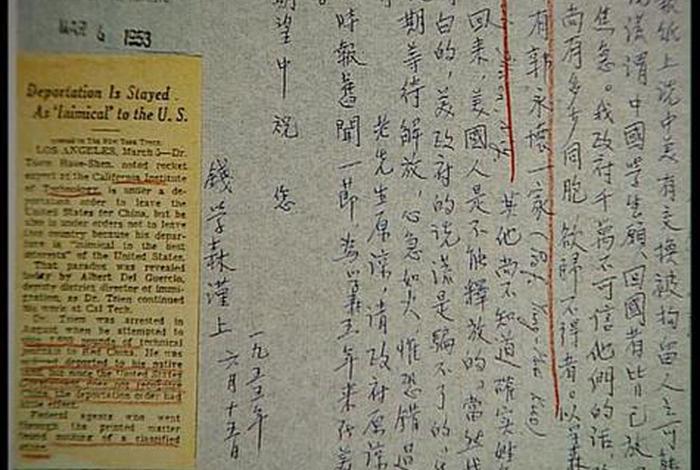 報紙上說中美有交換被拘留人之可能
謊謂中國學生願回國者皆已放
焦急。我政府千萬不可信他們的話，
尚有多少同胞欲歸不得者。以學森
有郭永懷一家
其他尚不知道確實姓
回來，美國人是不能釋放的。當然我
白的，美政府的說謊是騙不了的，
期等待解放，心急如火，惟恐錯過
老先生原諒，請政府原諒
時報舊聞一節，為學森五年來在美
期望中祝
您
錢學森謹上
一九五五年
六月十五日
MAR 6 1953
Deportation Is Stayed
As 'Inimical' to the U. S.
LOS ANGELES, March 5—Dr.
Tsien Hsue-Shen, noted rocket
expert at the California Institute
of Technology, is under a de-
portation order to leave the
United States for China, but he
also is under orders not to leave
the country because his depar-
ture is "inimical to the best
interests" of the United States.
That paradox was revealed
today by Albert Del Guercio,
deputy district director of immi-
gration, as Dr. Tsien continued
his work at Cal Tech.
Dr. Tsien was arrested in
August when he attempted to
pounds of technical
journals to Red China. He was
ordered deported to his native
land, but since the United States
Government does not recognize
China, the deportation order had
little effect.
Federal agents who went
through the printed matter
found nothing of a classified